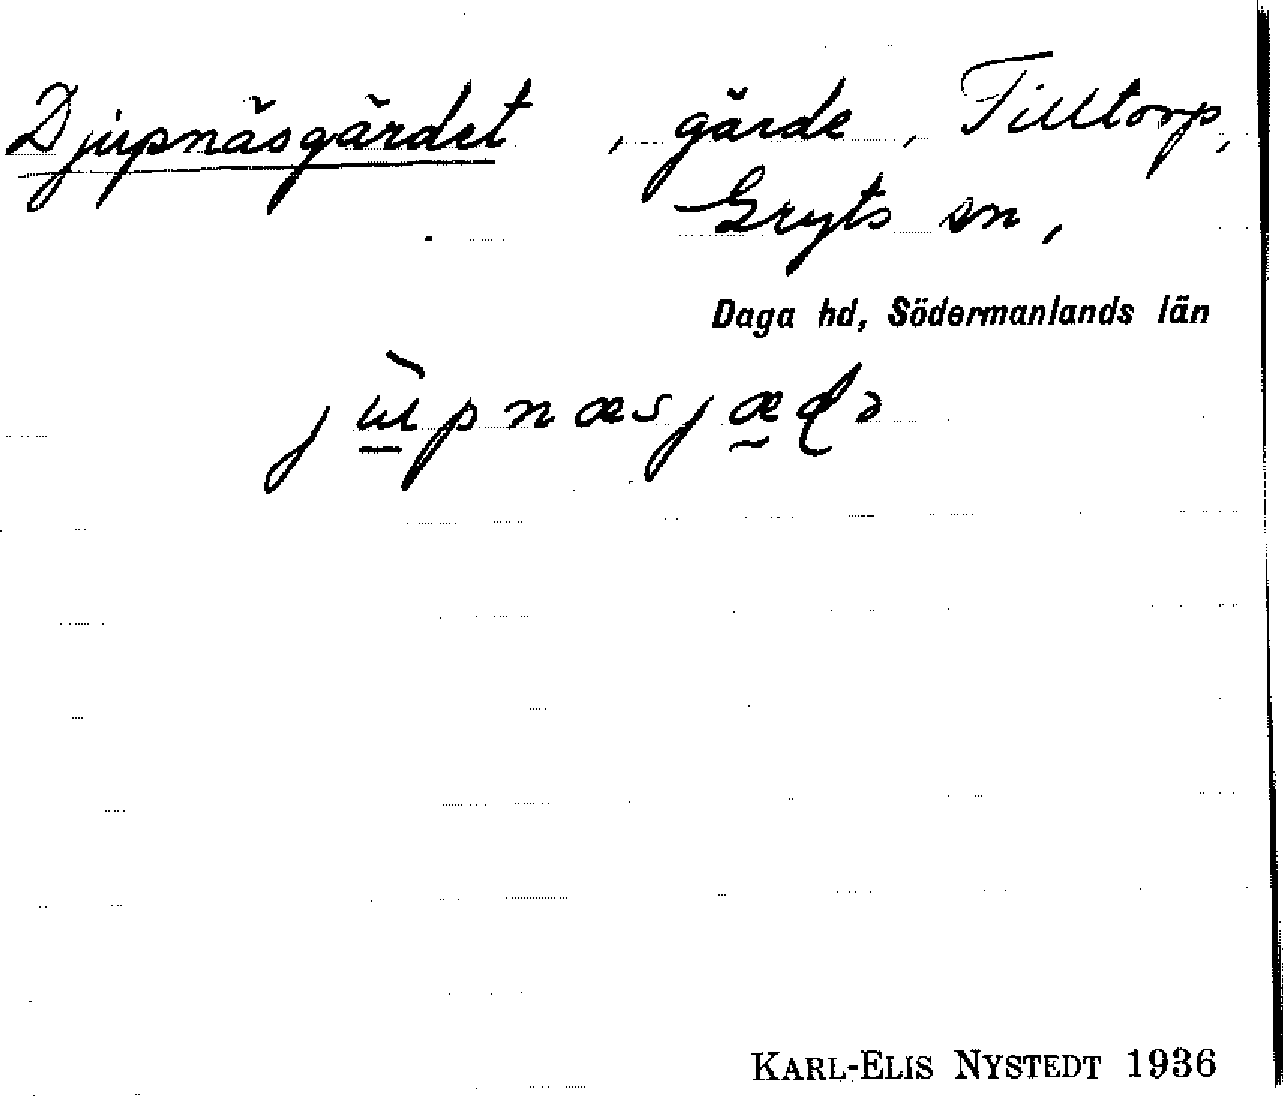 Djupnäsgärdet, gärde, Filltorp,
Gryts sn,
Daga hd, Södermanlands län
KARL-ELIS NYSTEDT 1936